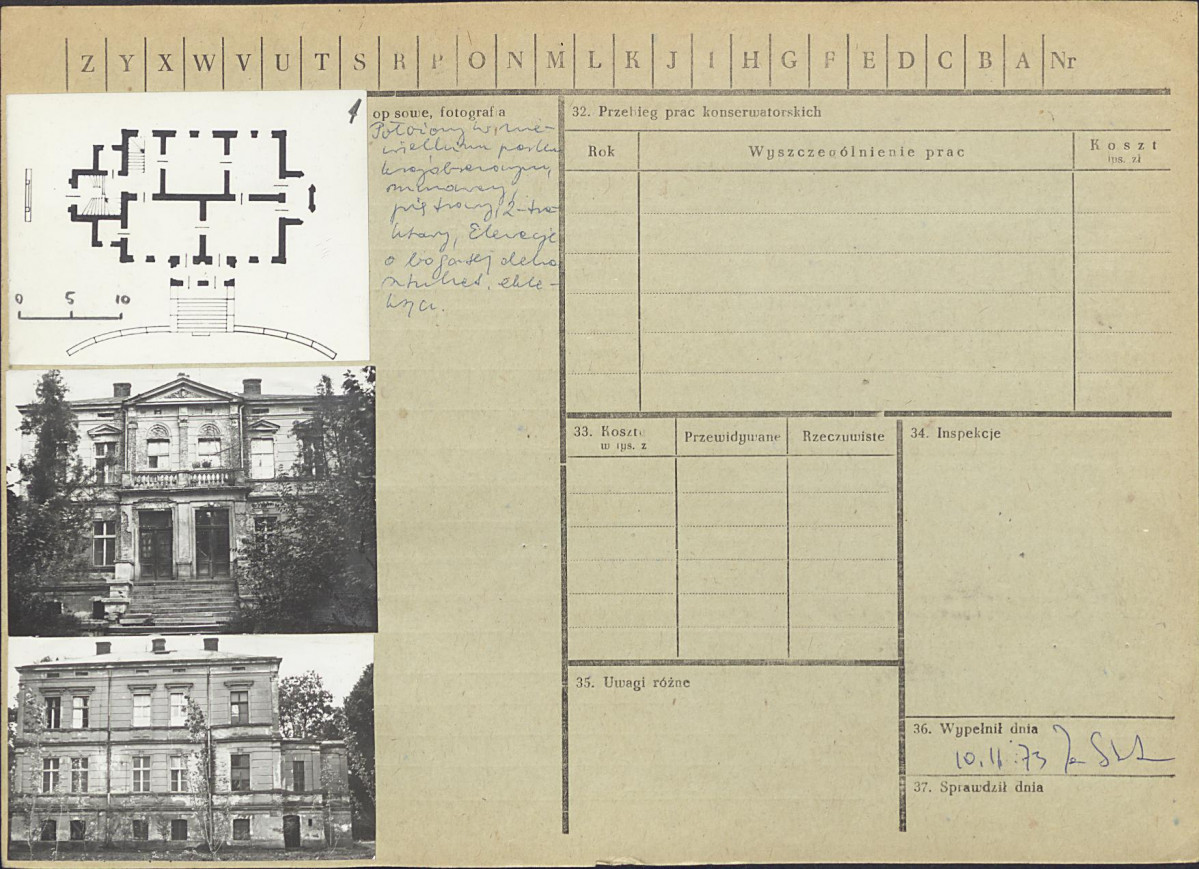 Z Y X W V U T S R P O N M L K J I H G F E D C B A Nr
1
0 5 10
op sowe, fotografia
Położony w nie-
wielkim parku
krajobrazowym,
murowany,
piętrowy, 2-tra-
ktowy, Elewacje
o bogatej deko
eklek-
32. Przebieg prac konserwatorskich
Rok
Wyszczególnienie prac
Koszt
tys. zł
33. Koszty
w tys. z
Przewidywane
Rzeczywiste
34. Inspekcje
35. Uwagi różne
36. Wypełnił dnia
10.11.73
37. Sprawdził dnia